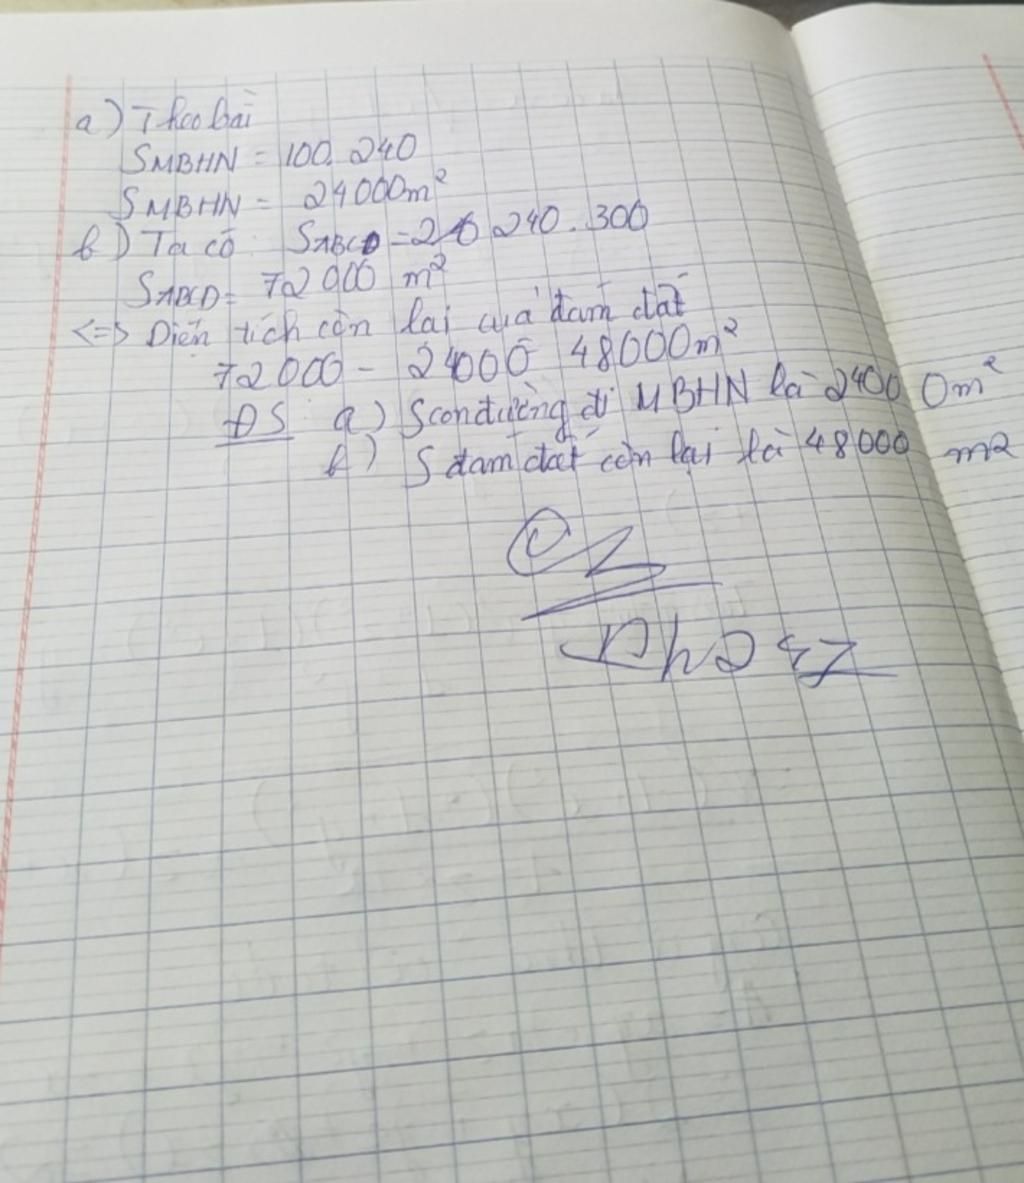 a) Theo bài
SMBHN = 100.240
SMBHN = 24000m²
b) Ta có SABCD = 240.300
SABCD = 72000 m²
<=> Diện tích còn lại của đám đất
72000 - 24000 48000m²
ĐS a) Scon đường đi MBHN là 24000m²
b) S đám đất còn lại là 48000 m2